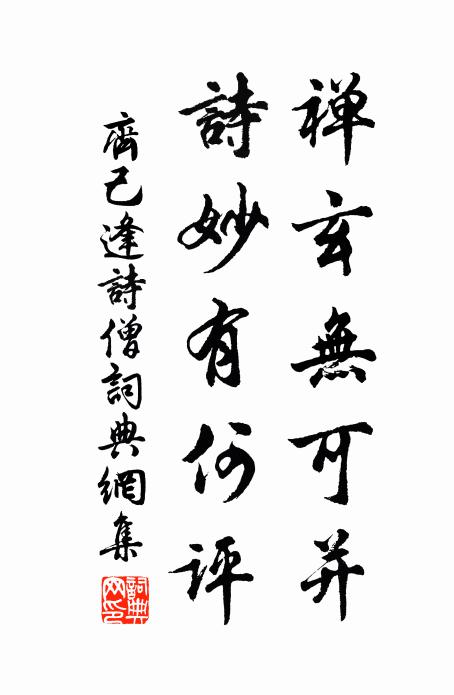 禅玄無可并
詩妙有何评
齊己逢詩僧詞典網集
詞典网印